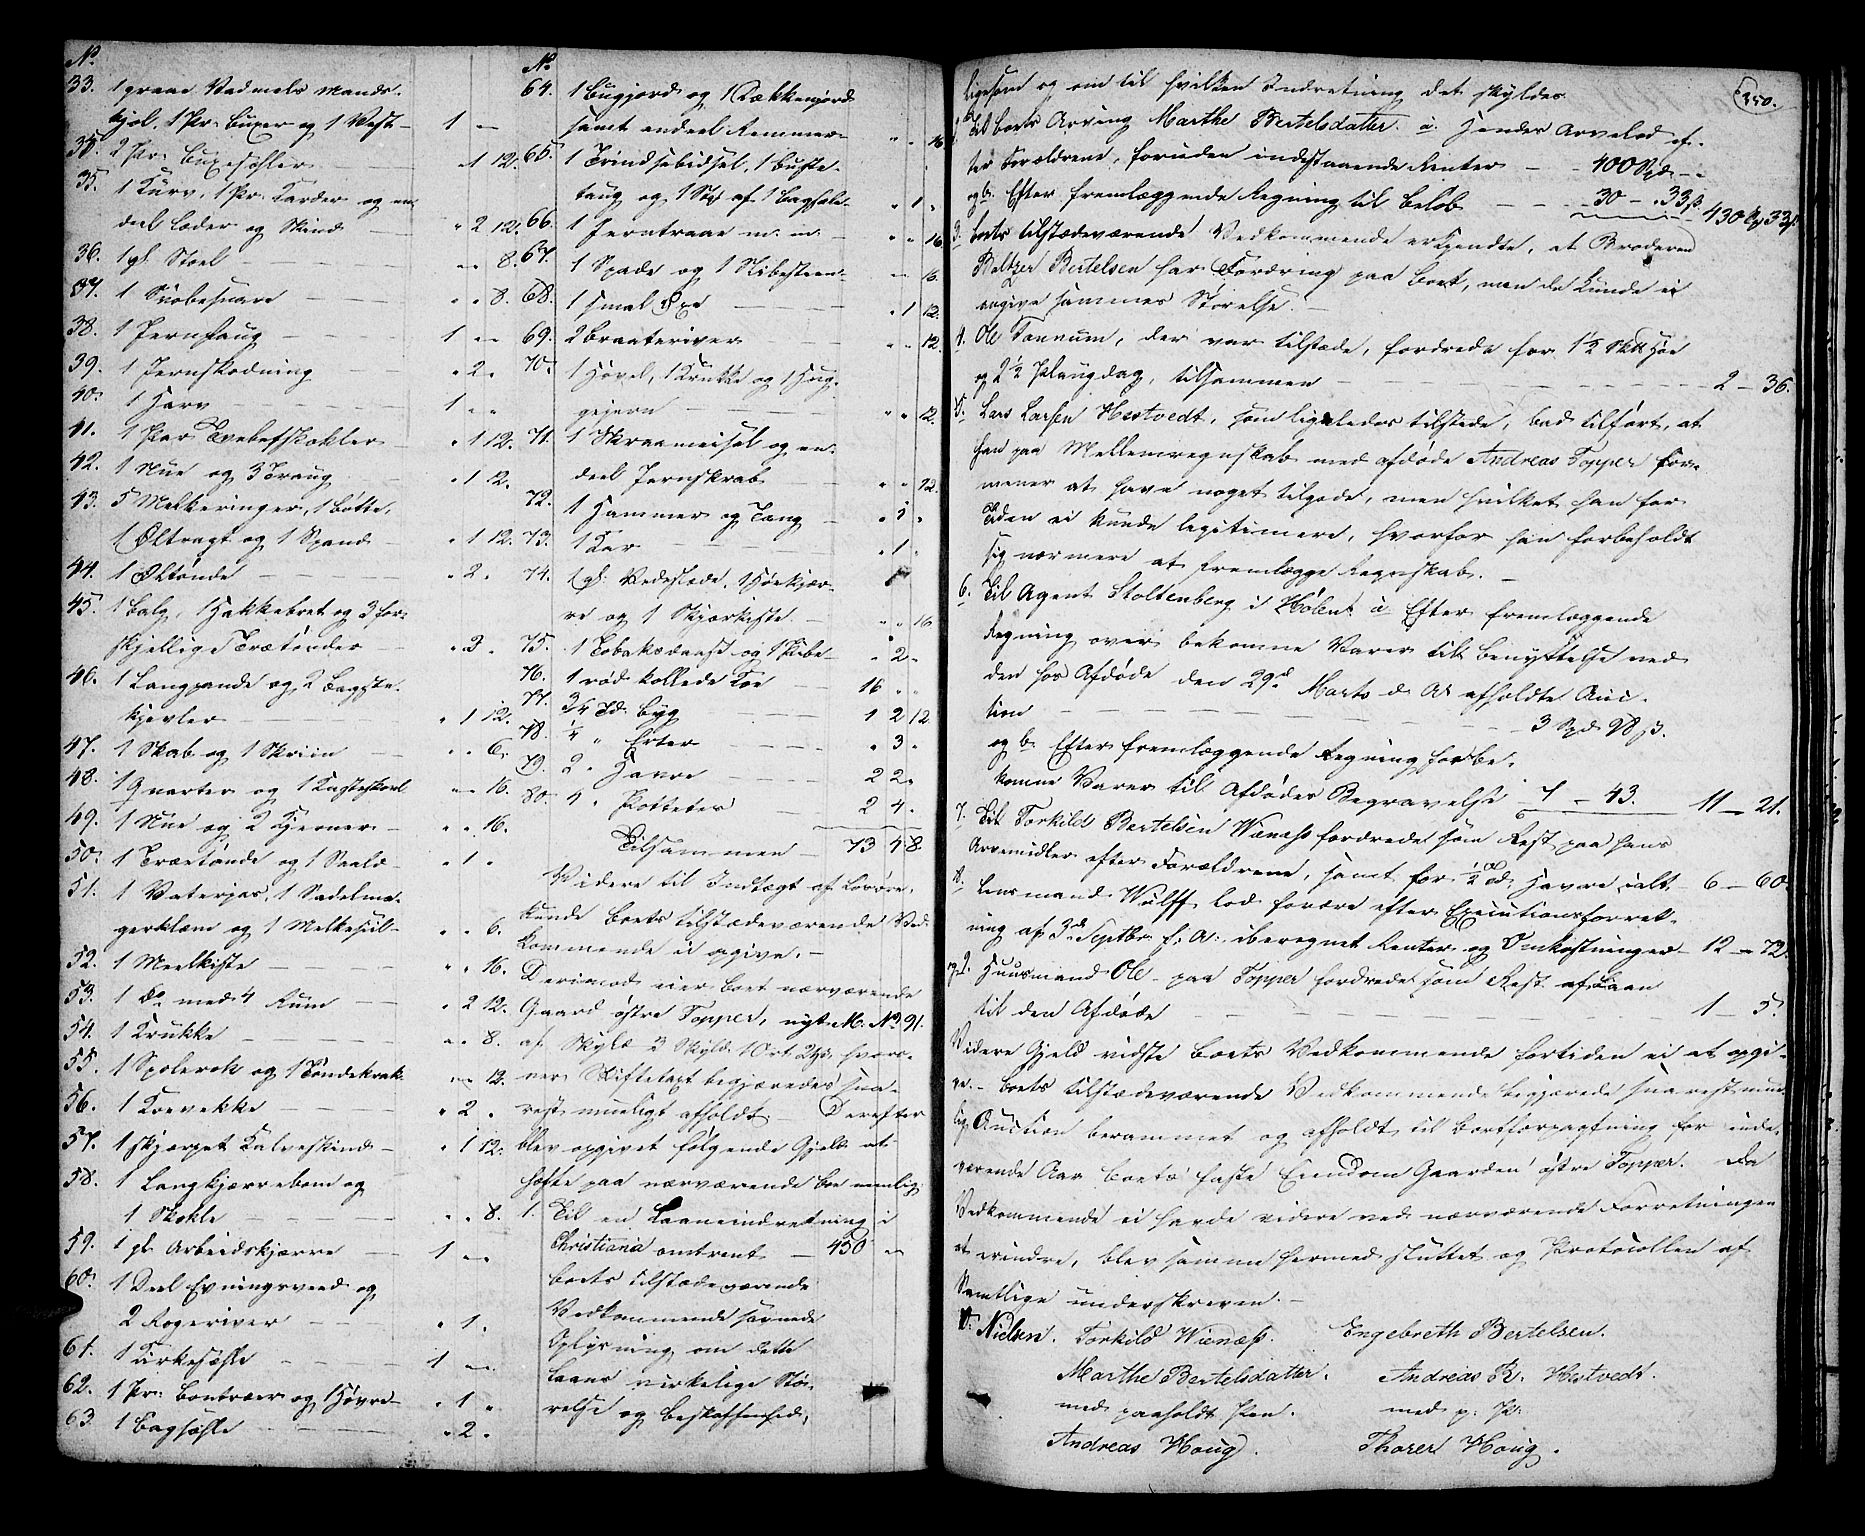 No
33. 1 graae Vadmels Mands-
kjol, 1 Pr. Buxer og 1 Vest - 1 "
35. 2 Par Buxesæhler - " 1 12.
35. 1 Kurv, 1 Pr. Karder og en
deel Læder og Skind - " 2 12.
36. 1 gl. Stoel - " " 8.
37. 1 Svøbesnare - " " 8.
38. 1 Jernhaug - 1 " "
39. 1 Jernskodning - " 2 "
40. 1 Harv - 1 " "
41. 1 Par Tvebeshokler - " 1 12.
42. 1 Nue og 3 Traug - " 1 12.
43. 5 Melkeringer, 1 Bøtte,
1 Øltragt og 1 Spand - " 1 12.
44. 1 Øltønde - " 2 "
45. 1 Balg, 1 Hakkebret og 3 for-
skjellige Trætønder - " 3 "
46. 1 Langpande og 2 Bagste-
kjevler - " 1 12.
47. 1 Skab og 1 Skriin - " " 6.
48. 1 Qvarter og 1 Kasteskovl " " 16.
49. 1 Nue og 2 Kjerner - " " 16.
50. 1 Trætønde og 1 Saald - " 1 "
51. 1 Vaterpas, 1 Sadelma-
gerklæm og 1 Melkesiil - " " 6.
52. 1 Meelkiste - " " 16.
53. 1 Do med 4 Rum - " 2 12.
54. 1 Krukke - " " 8.
55. 1 Spolerok og 1 Tøndekrak " " 12.
56. 1 Torvekke - " 2 "
57. 1 skjærpet Kalveskind - " 1 12.
58. 1 Langkjærrebom og
1 Skokle - " " 8.
59. 1 gl. Arbeidskjærre - 1 " "
60. 1 Deel Evningsveed og
2 Rogeriver - " 1.
61. 1 Kirkesæhle - 1 " "
62. 1 Pr. Bomtræer og 1 Høvre - " 1 "
63. 1 Bagsæhle - " 2 "
No
64. 1 Bugjord og 1 Tækkemjord
samt endeel Remmer - " " 16
65. 1 Grindsebidsel, 1 Buste-
taug og 1 Støt af 1 Bagsæle - " 1 "
66. 1 Jerntraae m. m. - " " 16
67. 1 Spade og 1 Slibesteen - " " 16.
68. 1 smal Øxe - " 1 12.
69. 2 Braateriver - " " 12.
70. 1 Høvel, 1 Krukke og 1 Hug-
gejern - " " 12.
71. 1 Skraameisel og en
deel Jernskrab - " " 12.
72. 1 Hammer og Tang - " 1 "
73. 1 Kar - " 1 "
74. 1 gl. Vedeslæde, 1 Høekjær-
re og 1 Skjærkiste - " " 16
75. 1 Tobaksdaase og 1 Pibe - " 2 "
76. 1 rød kollede Koe - 16 " "
77. 3/4 Td. Byg - 1 2 12
78. 1/4 " Erter - " 3 "
79. 2 " Havre - 2 2 "
80. 4 " Poteter - 2 4 "
Tilsammen - 73 4 8.
Videre til Indtægt af Løsøre
kunde Boets tilstædeværende Ved-
kommende ei opgive. -
Derimod eier Boet nærværende
Gaard østre Topper, nyt M. No 91.
af Skyld 2 Skyld. 1 Ort 2 ß, hvors-
ner Skiftetaxt begjæredes sna-
rest mueligt afholdt. Derefter
blev opgivet følgende Gjeld at
hæfte paa nærværende Boe nemlig:
1. Til en Laaneindretning i
Christiania omtrent - 450 "
Boets tilstædeværende
Vedkommende savnede
Oplysning om dette
Laans virkelige Stør-
relse og Beskaffenhed,
350.
ligesom og om til hvilken Indretning det skyldes.
2. Til Boets Arving Marthe Bertelsdatter. a. Hendes Arvelod ef-
ter Forældrene, foruden indestaaende Renter - - 400 Spd - "
og b. Efter fremlæggende Regning til Beløb - 30 - . 33 ß. 430 Spd 33 ß.
3. Boets tilstædeværende Vedkommende erkjendte, at Broderen
Baltzer Bertelsen har Fordring paa Boet, men de kunde ei
angive sammes Størelse. -
4. Ole Sannum, der var tilstæde, fordrede for 1 1/2 Sktt Høe
og 2 1/2 Plaugdag, tilsammen - 2 - 36.
5. Lars Larsen Hestvedt, som ligeledes tilstede, bad tilført, at
han paa Mellemregnskab med afdøde Andreas Topper for-
mener at have noget tilgode, men hvilket han for
Tiden ei kunde legitimere, hvorfor han forbeholdt
sig nærmere at fremlægge Regnskab. -
6. Til Agent Stoltenberg i Hølen: a. Efter fremlæggende
Regning over bekomne Varer til Benyttelse ved
den hos Afdøde den 29d Marts d. A. afholdte Auc-
tion - 3 Spd 98 ß.
og b. Efter fremlæggende Regning for be-
komne Varer til Afdødes Begravelse 7 - 43. 11 - 21.
7. Til Torkild Bertelsen Wænæss fordrede som Rest paa hans
Arvemidler efter Forældrene, samt for 1/2 Td. Havre, ialt - 6 - 60.
8. Lensmand Wulff lod fordre efter Executionsforret-
ning af 3d Septbr f. A. iberegnet Renter og Omkostninger - 12 - 72.
9. Huusmand Ole paa Topper fordrede som Rest af Laan
til den Afdøde - 1 - 5.
Videre Gjeld vidste Boets Vedkommende fortiden ei at opgi-
ve. - Boets tilstædeværende Vedkommende begjærede snarest mue-
lig Auction berammet og afholdt til Bortforpagtning for inde-
værende Aar Boets faste Eiendom Gaarden østre Topper. Da
Vedkommende ei havde videre ved nærværende Forretningen
at erindre, blev samme hermed sluttet og Protocollen af
Samtlige underskreven. -
Nielsen. Torkild Wienæss. Engebreth Bertelsen.
Marthe Bertelsdatter. Andreas R. Hestvedt.
med paaholdt Pen. med p. P.
Andreas Houg. Thorer Houg.